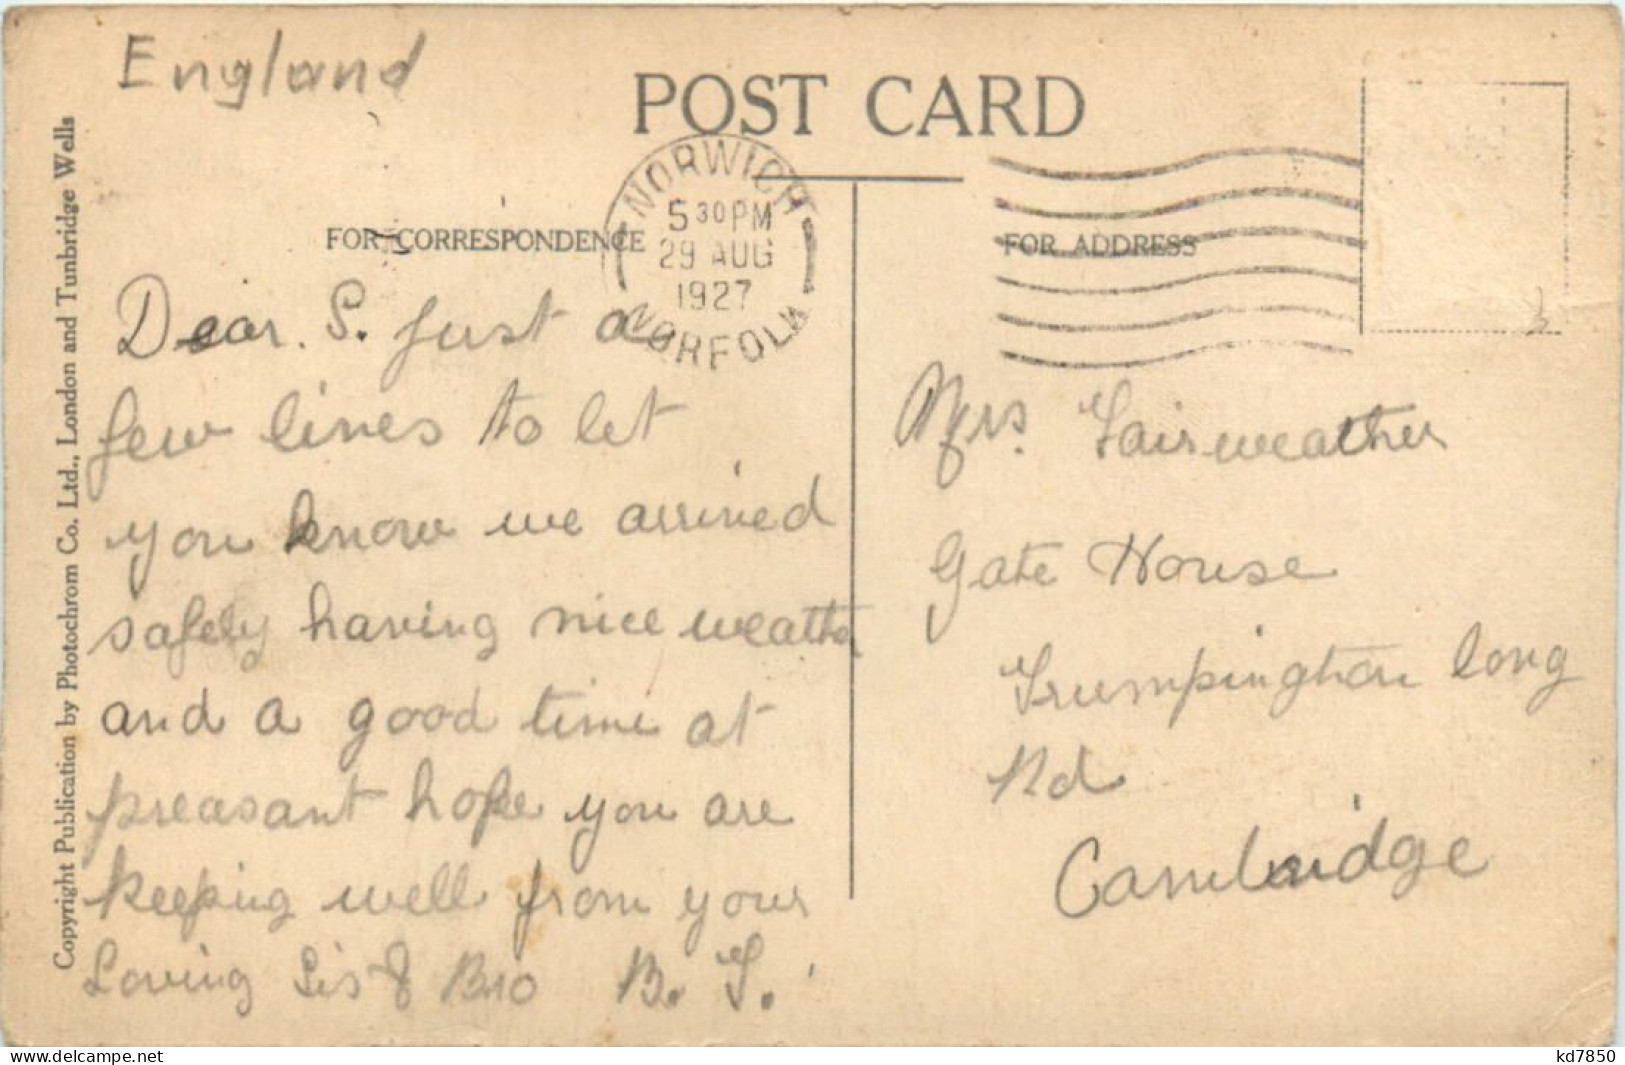 England
POST CARD
NORWICH
5 30 PM
29 AUG
1927
NORFOLK
FOR CORRESPONDENCE
FOR ADDRESS
Dear. S. just a
few lines to let
you know we arrived
safely having nice weather
and a good time at
preasant hope you are
keeping well from your
Loving Sis & Bro B. F.
Mrs. Fairweather
Gate House
Trumpington long
Rd
Cambridge
Copyright Publication by Photochrom Co. Ltd., London and Tunbridge Wells
www.delcampe.net
kd7850